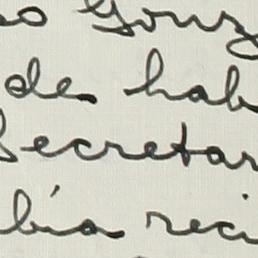 so Gonz
de hab
Secretar
bía reci